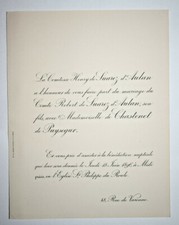 La Comtesse Henry de Suarez d'Aulan
a l'honneur de vous faire part du mariage du
Comte Robert de Suarez d'Aulan, son
fils, avec Mademoiselle de Chastenet
de Puységur.
Et vous prie d'assister à la Bénédiction nuptiale
qui leur sera donnée le Jeudi 18 Juin 1896, à Midi
précis en l'Église St Philippe du Roule.
Rue de Varenne